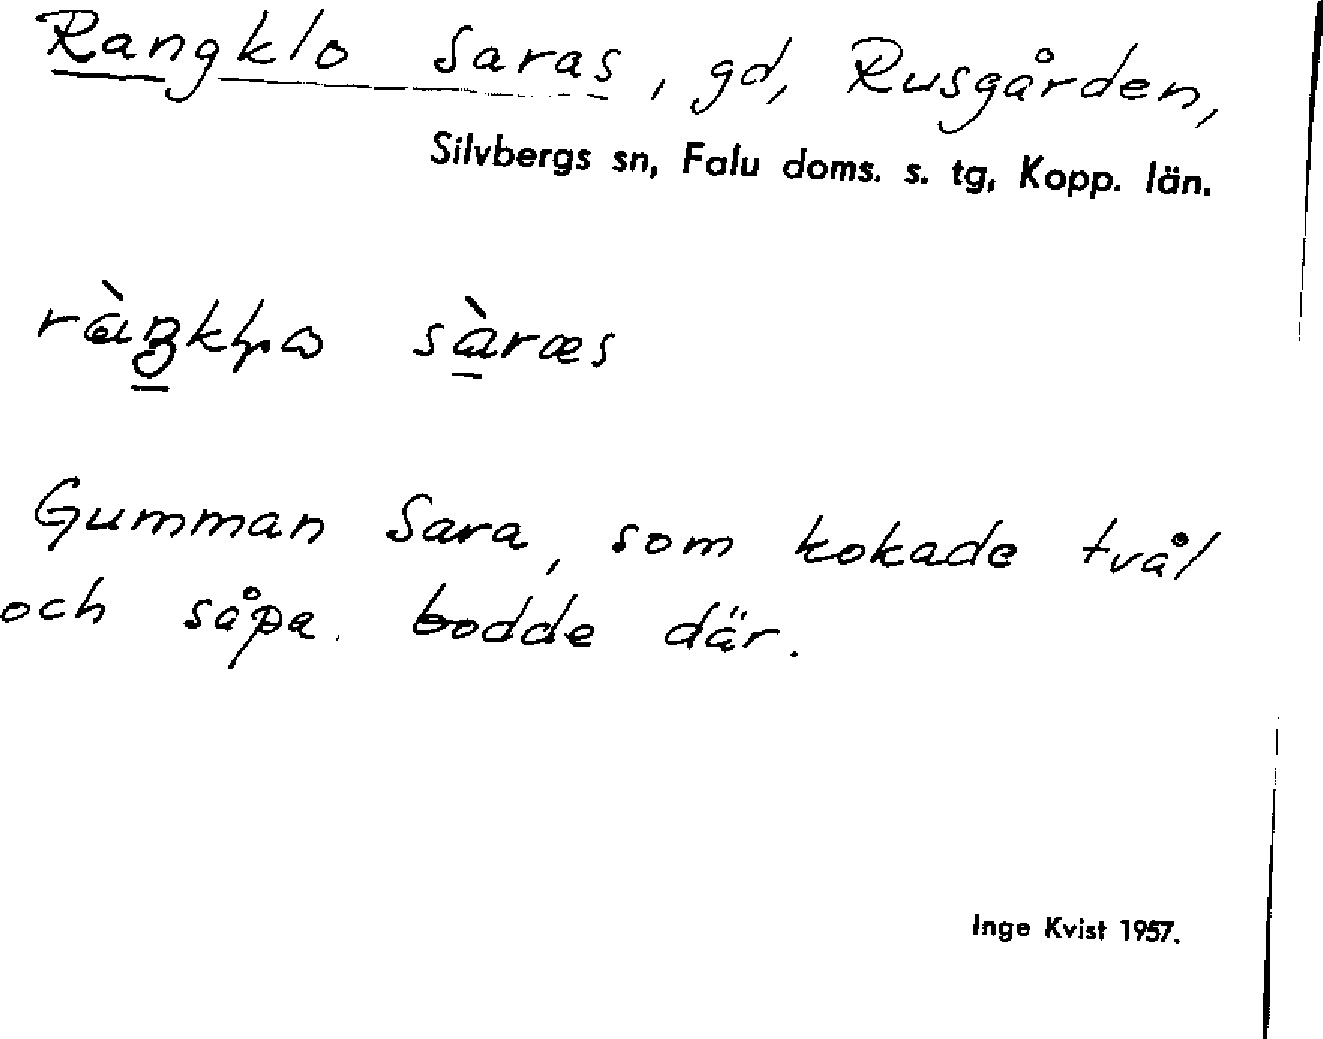 Rangklo Saras, gd, Rusgården,
Silvbergs sn, Falu doms. s. tg, Kopp. län.
sàræs
Gumman Sara, som kokade tvål
och såpa. bodde där.
Inge Kvist 1957.